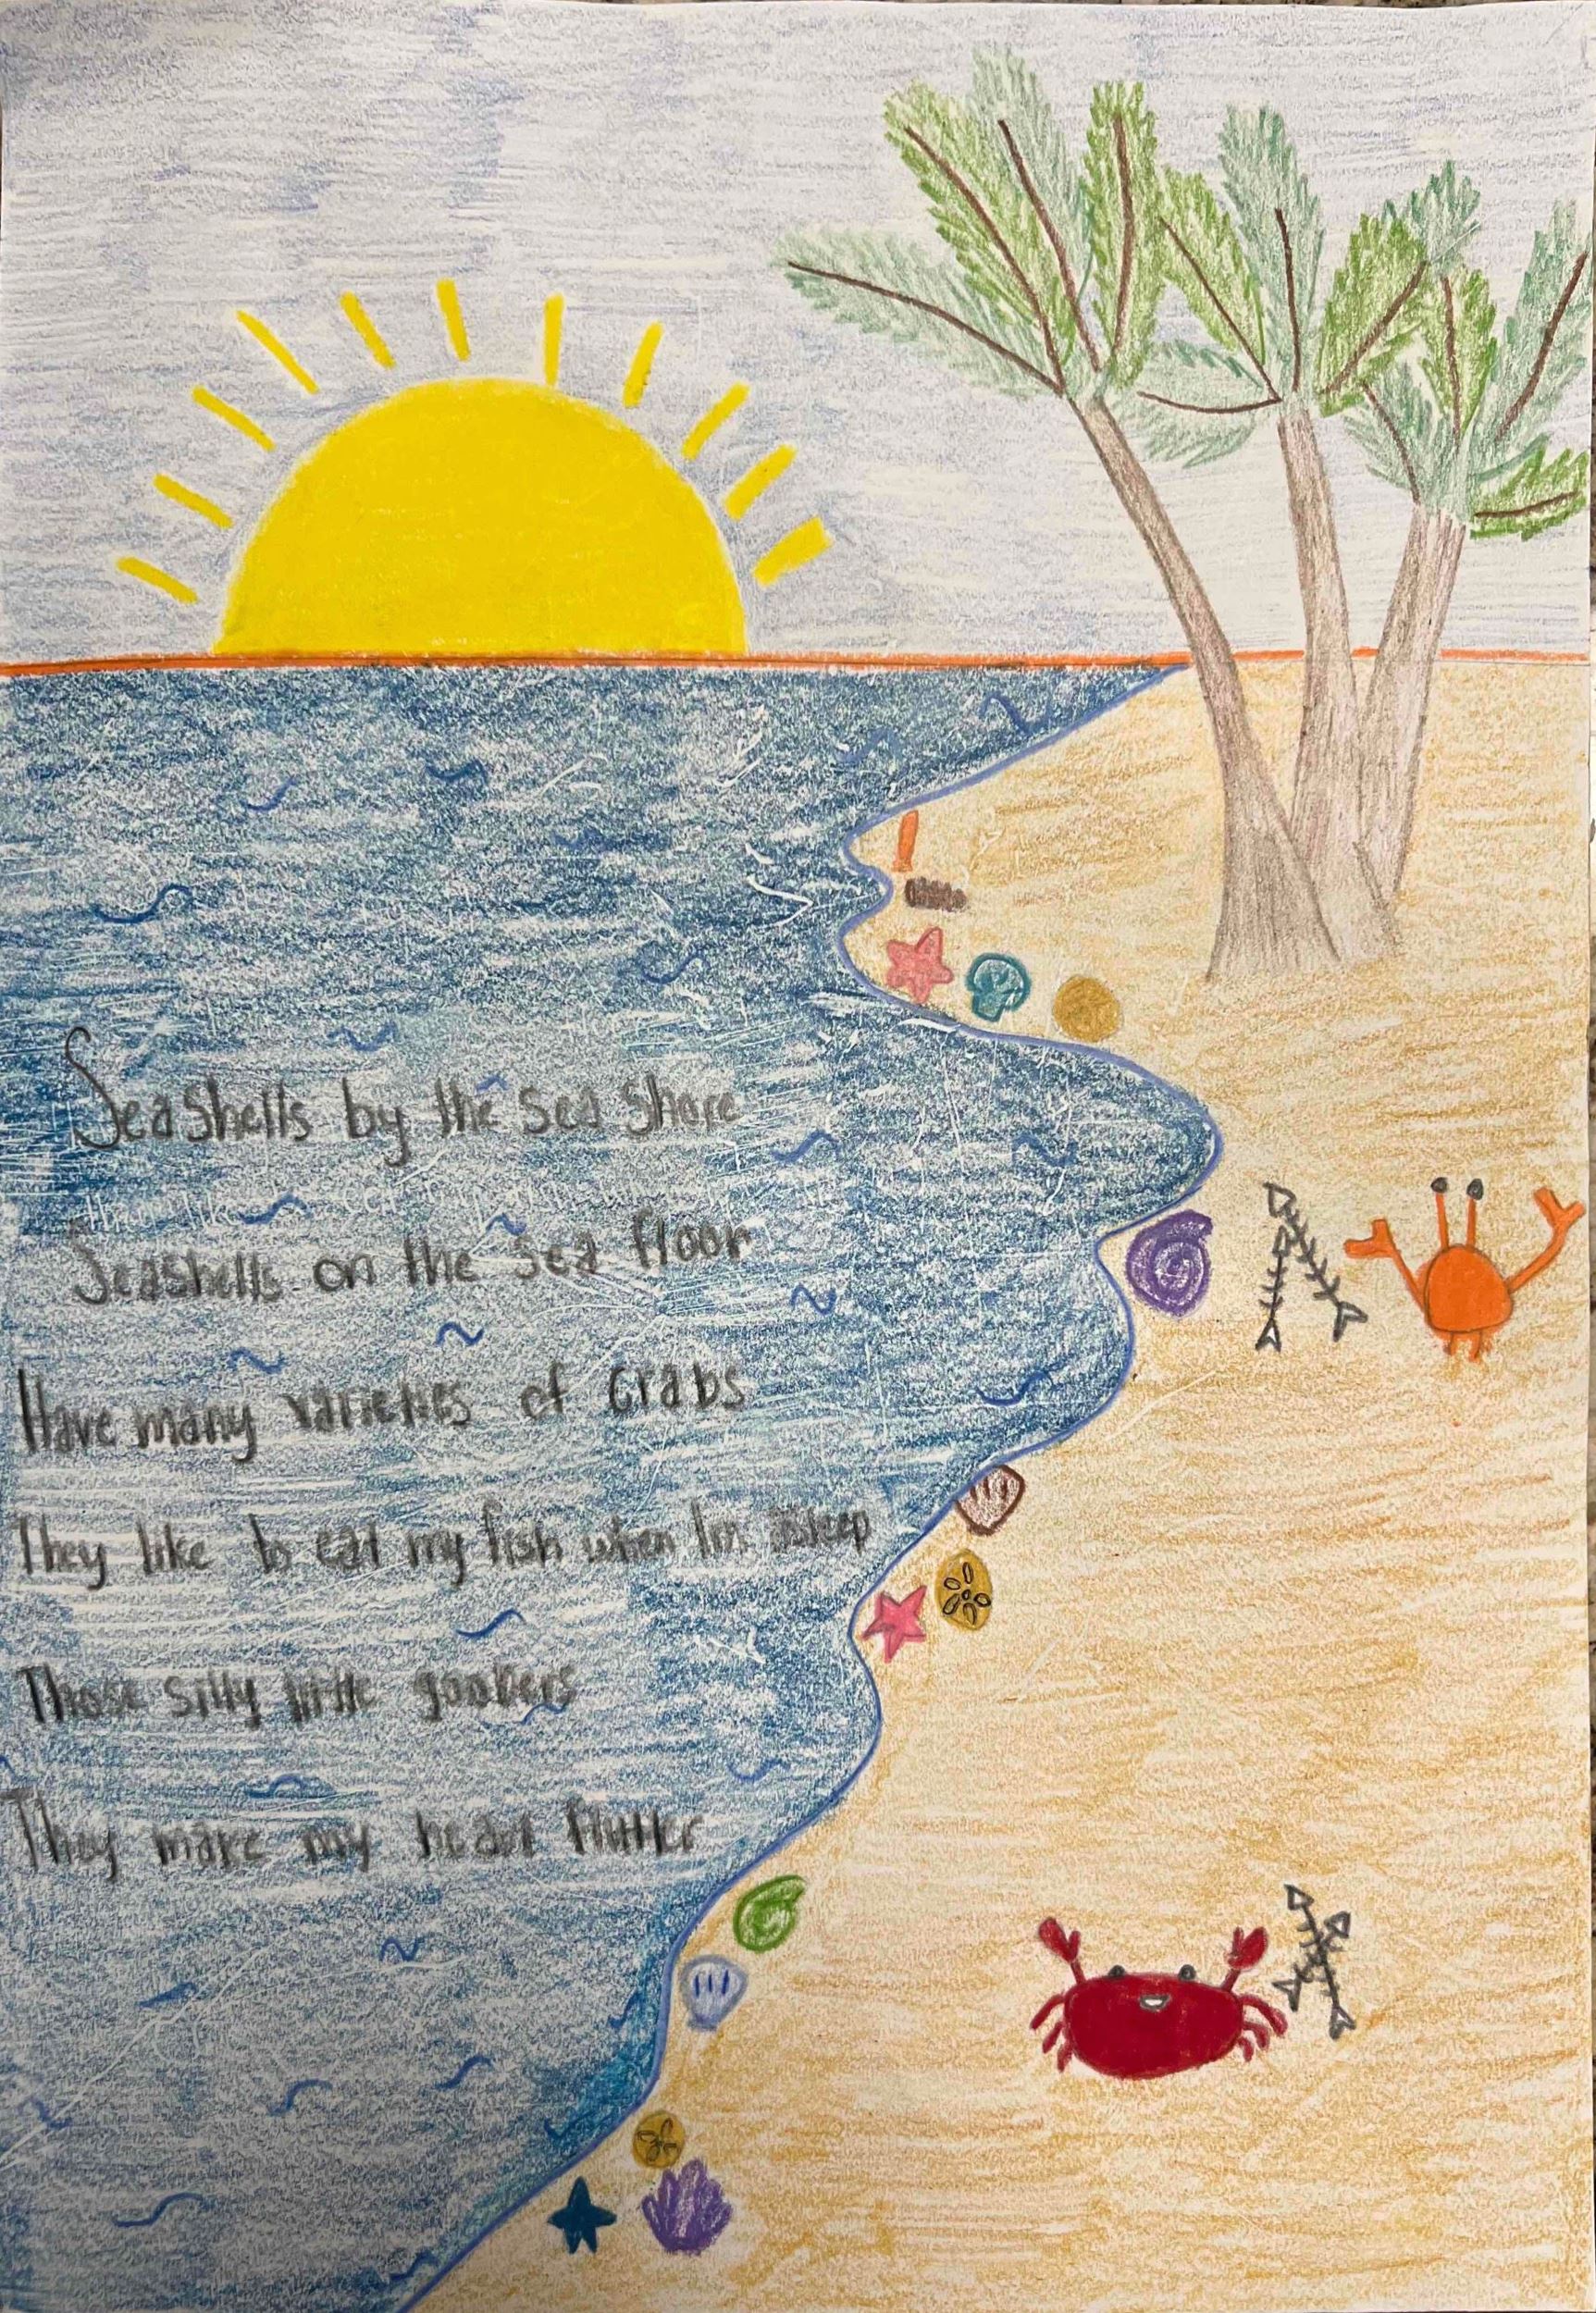 Seashells by the Sea Shore
Seashells on the Sea floor
Have many varieties of crabs
They like to eat my fish when Im asleep
Those silly little goobers
They make my heart flutter